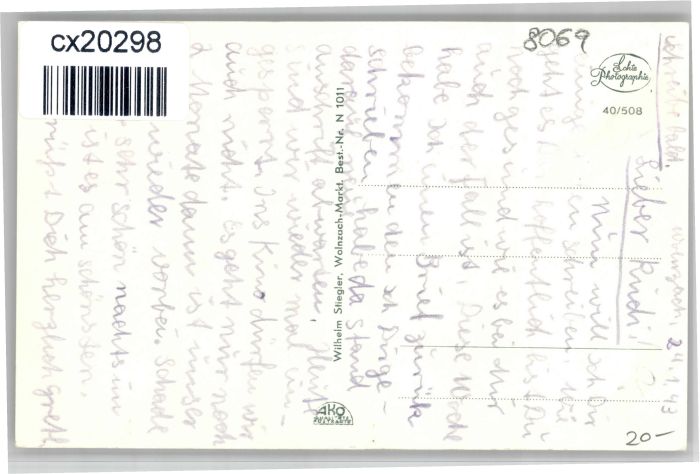 cx20298
8069
Echte Photographie
40/508
Wilhelm Stiegler, Wolnzach-Markt. Best.-Nr. N 1011
AKO
20-
24.1.43
Lieber Rudi!
Nun will ich Dir
zu schreiben. Wie
geht es Dir, hoffentlich bist Du
noch gesund wie es bei mir
auch der Fall ist. Diese Woche
habe ich einen Brief zurück
bekommen den ich Dir ge-
schrieben habe da stand
darauf neue
anschrift abwarten. Heute
sind wir wieder mal ein-
gesperrt. Ins Kino dürfen wir
auch nicht. Es geht nur noch
2 Monate dann ist unser
wieder vorbei. Schade
sehr schön nachts im
ist es am schönsten.
grüßt Dich herzlich Gretl
schreibe bald.